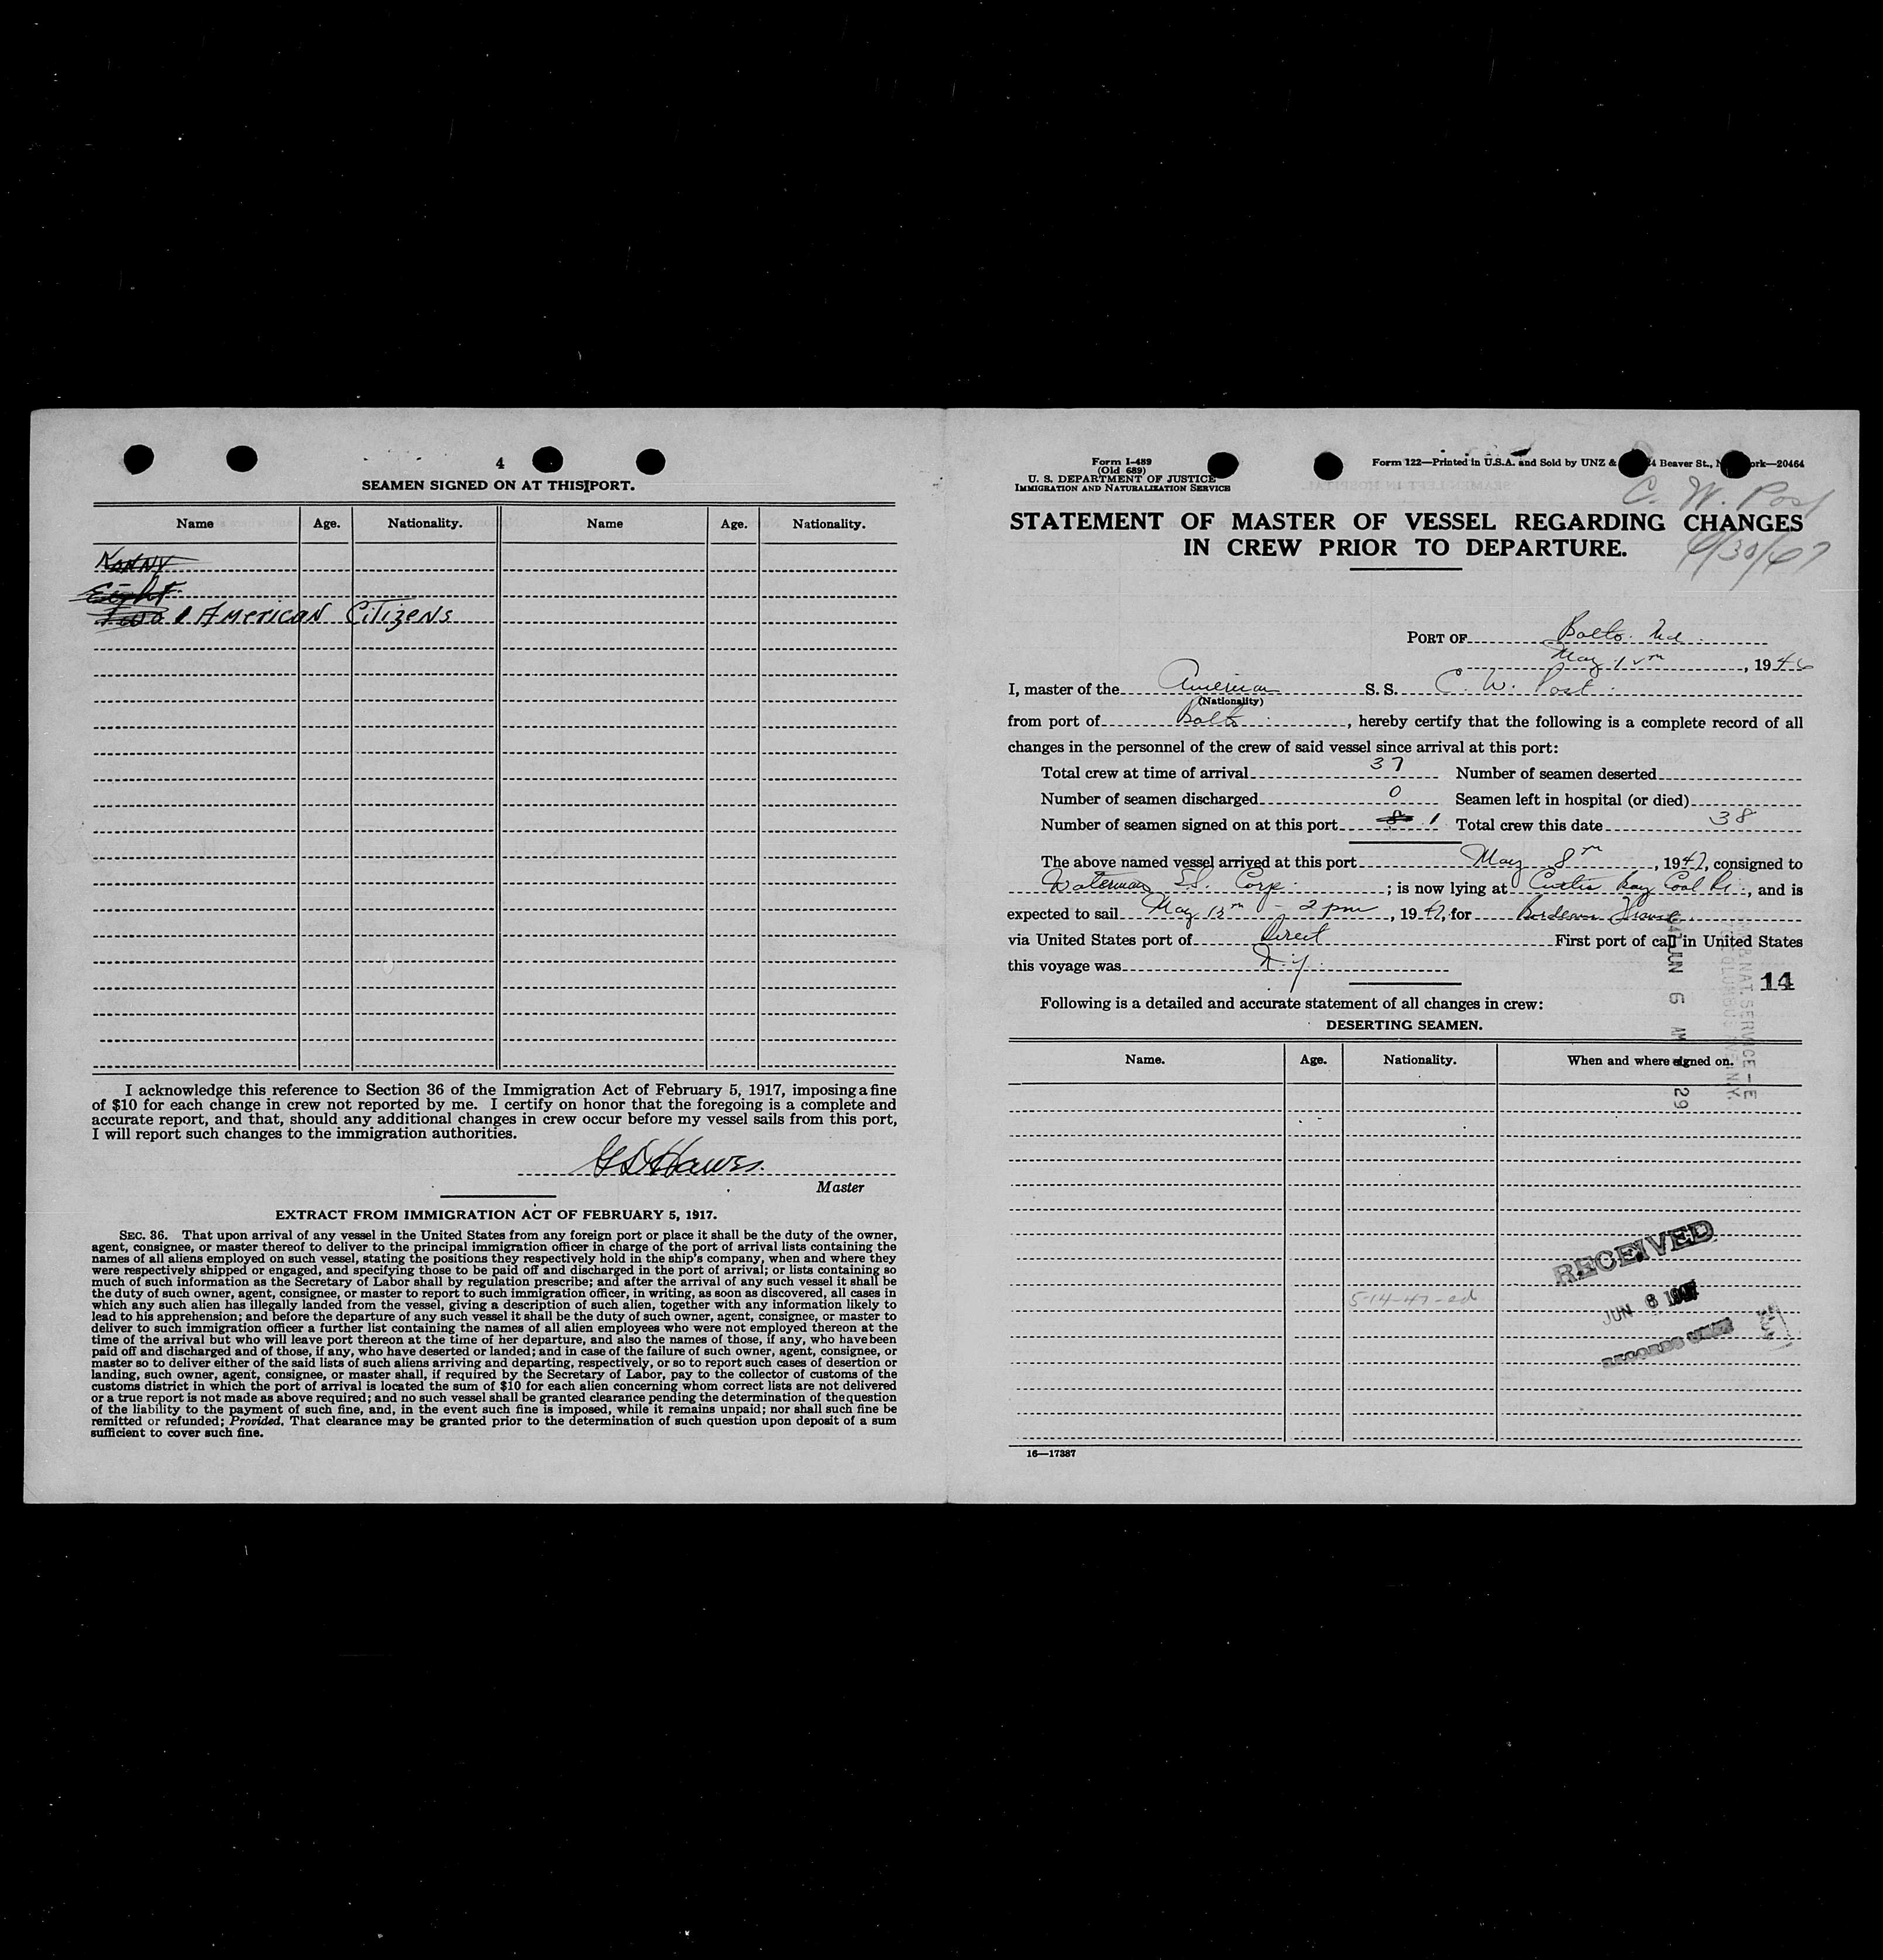 4
SEAMEN SIGNED ON AT THIS PORT.
Name Age. Nationality. Name Age. Nationality.
Eight
Two 1 American Citizens
I acknowledge this reference to Section 36 of the Immigration Act of February 5, 1917, imposing a fine
of $10 for each change in crew not reported by me. I certify on honor that the foregoing is a complete and
accurate report, and that, should any additional changes in crew occur before my vessel sails from this port,
I will report such changes to the immigration authorities.
Master
EXTRACT FROM IMMIGRATION ACT OF FEBRUARY 5, 1917.
SEC. 36. That upon arrival of any vessel in the United States from any foreign port or place it shall be the duty of the owner,
agent, consignee, or master thereof to deliver to the principal immigration officer in charge of the port of arrival lists containing the
names of all aliens employed on such vessel, stating the positions they respectively hold in the ship's company, when and where they
were respectively shipped or engaged, and specifying those to be paid off and discharged in the port of arrival; or lists containing so
much of such information as the Secretary of Labor shall by regulation prescribe; and after the arrival of any such vessel it shall be
the duty of such owner, agent, consignee, or master to report to such immigration officer, in writing, as soon as discovered, all cases in
which any such alien has illegally landed from the vessel, giving a description of such alien, together with any information likely to
lead to his apprehension; and before the departure of any such vessel it shall be the duty of such owner, agent, consignee, or master to
deliver to such immigration officer a further list containing the names of all alien employees who were not employed thereon at the
time of the arrival but who will leave port thereon at the time of her departure, and also the names of those, if any, who have been
paid off and discharged and of those, if any, who have deserted or landed; and in case of the failure of such owner, agent, consignee, or
master so to deliver either of the said lists of such aliens arriving and departing, respectively, or so to report such cases of desertion or
landing, such owner, agent, consignee, or master shall, if required by the Secretary of Labor, pay to the collector of customs of the
customs district in which the port of arrival is located the sum of $10 for each alien concerning whom correct lists are not delivered
or a true report is not made as above required; and no such vessel shall be granted clearance pending the determination of the question
of the liability to the payment of such fine, and, in the event such fine is imposed, while it remains unpaid; nor shall such fine be
remitted or refunded; Provided, That clearance may be granted prior to the determination of such question upon deposit of a sum
sufficient to cover such fine.
Form I-489
(Old 689)
U. S. DEPARTMENT OF JUSTICE
IMMIGRATION AND NATURALIZATION SERVICE
Form 122—Printed in U.S.A. and Sold by UNZ & Beaver St., 20464
C. W. Post
STATEMENT OF MASTER OF VESSEL REGARDING CHANGES
IN CREW PRIOR TO DEPARTURE.
PORT OF Balto. Md.
May, 1946
I, master of the American S. S. C. W. Post.
(Nationality)
from port of Balto., hereby certify that the following is a complete record of all
changes in the personnel of the crew of said vessel since arrival at this port:
Total crew at time of arrival 37 Number of seamen deserted
Number of seamen discharged 0 Seamen left in hospital (or died)
Number of seamen signed on at this port 8 1 Total crew this date 38
The above named vessel arrived at this port May 8th, 1947, consigned to
Waterman SS. Corp.; is now lying at Curtis Bay Coal Pr., and is
expected to sail May 13th - 2 pm, 1947, for Bordeaux France
via United States port of Direct First port of call in United States
this voyage was N.Y.
14
Following is a detailed and accurate statement of all changes in crew:
DESERTING SEAMEN.
Name. Age. Nationality. When and where signed on.
JUN 6 AM 29
RECEIVED
5-14-47-ed
JUN 6 1947
16—17387